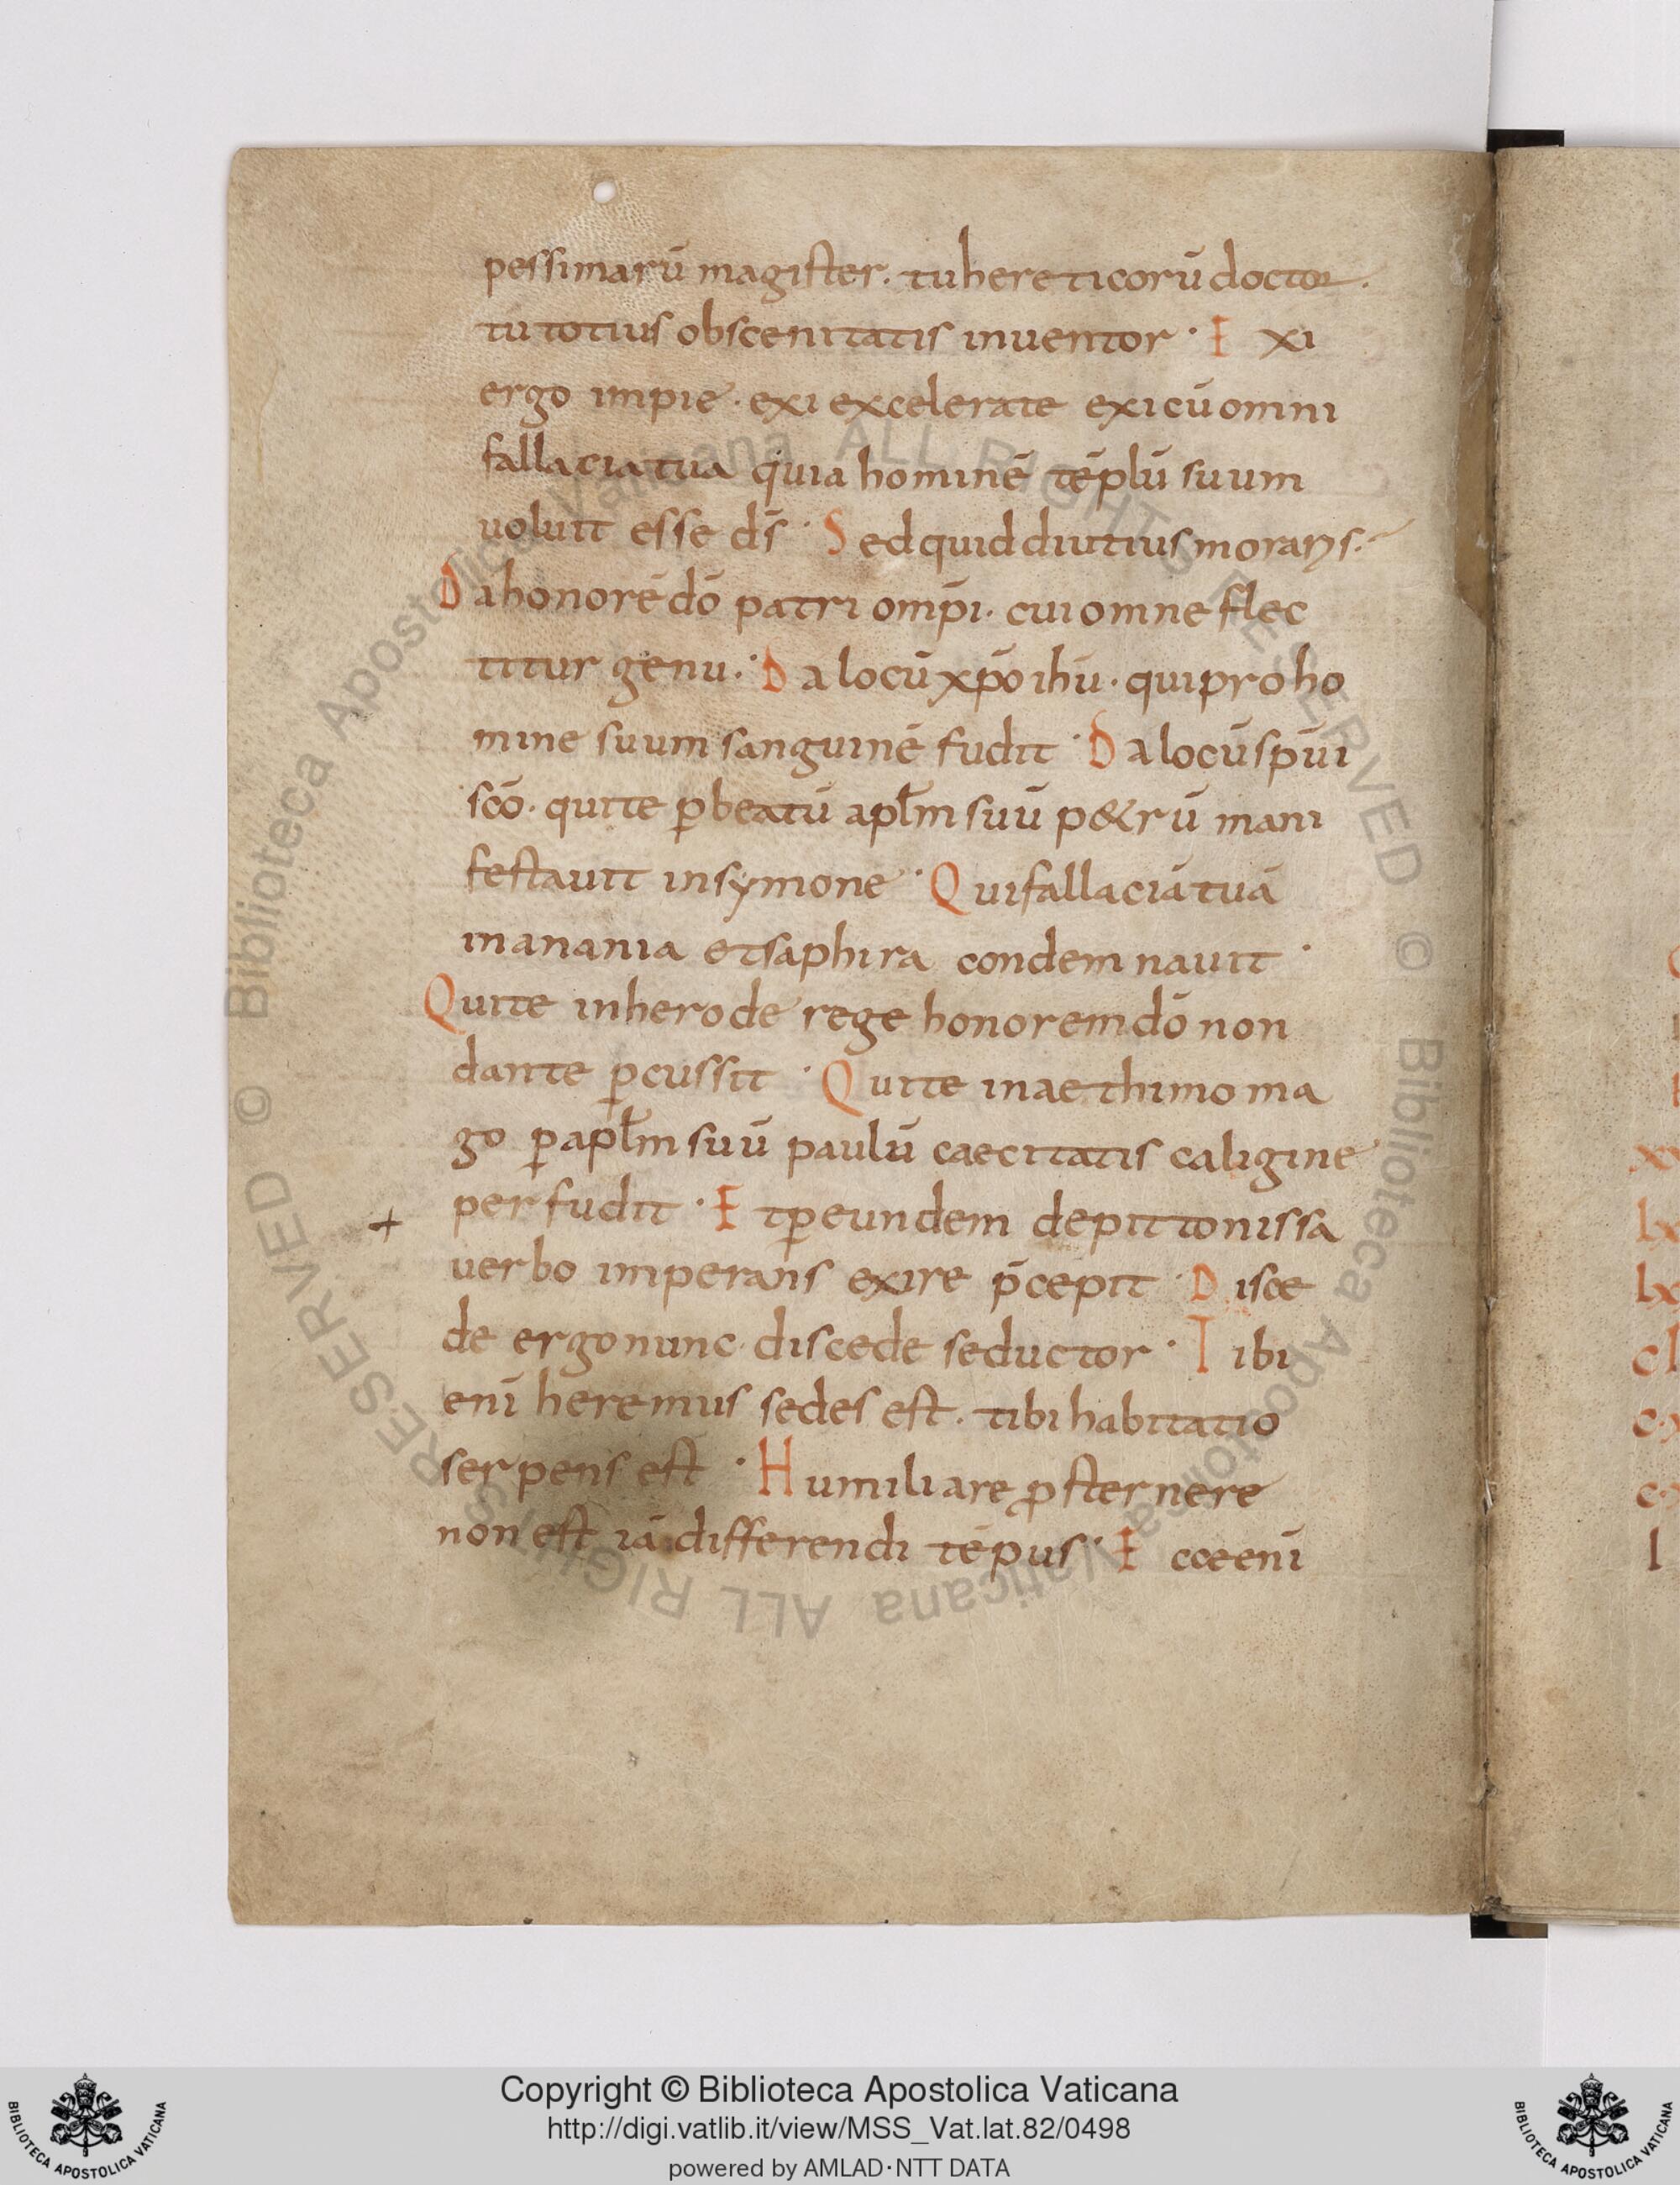 pessimarū magister. tu hereticorū doctor.
tu totius obscenitatis inuentor · Exi
ergo impie · exi excelerate exi cū omni
fallacia tua quia hominē tēplū suum
uoluit esse ds̄ · Sed quid diutius moraris.
Da honorē dō patri omp̄i · cui omne flec
titur genu · Da locū xp̄o ihū · qui pro ho
mine suum sanguinē fudit · Da locū sp̄ui
scō · qui te ꝑ beatū apłm suū p&rū mani
festauit in symone · Qui fallaciā tuā
in anania et saphira condemnauit ·
Qui te in herode rege honorem dō non
dante ꝑcussit · Qui te in aethimo ma
go ꝑ apłm suū paulū caecitatis caligine
perfudit · Et ꝑ eundem de pittonissa
+
uerbo imperans exire p̄cepit · Disce
de ergo nunc · discede seductor · Tibi
enī heremus sedes est. tibi habitatio
serpens est · Humiliare ꝓsternere
non est iā differendi tēpus · Ecce enī
x
lx
lx
cl
c·x
c·x
l
© Biblioteca Apostolica Vaticana ALL RIGHTS RESERVED © Biblioteca Apostolica Vaticana ALL RIGHTS RESERVED
Copyright © Biblioteca Apostolica Vaticana
http://digi.vatlib.it/view/MSS_Vat.lat.82/0498
powered by AMLAD·NTT DATA
BIBLIOTECA APOSTOLICA VATICANA
BIBLIOTECA APOSTOLICA VATICANA